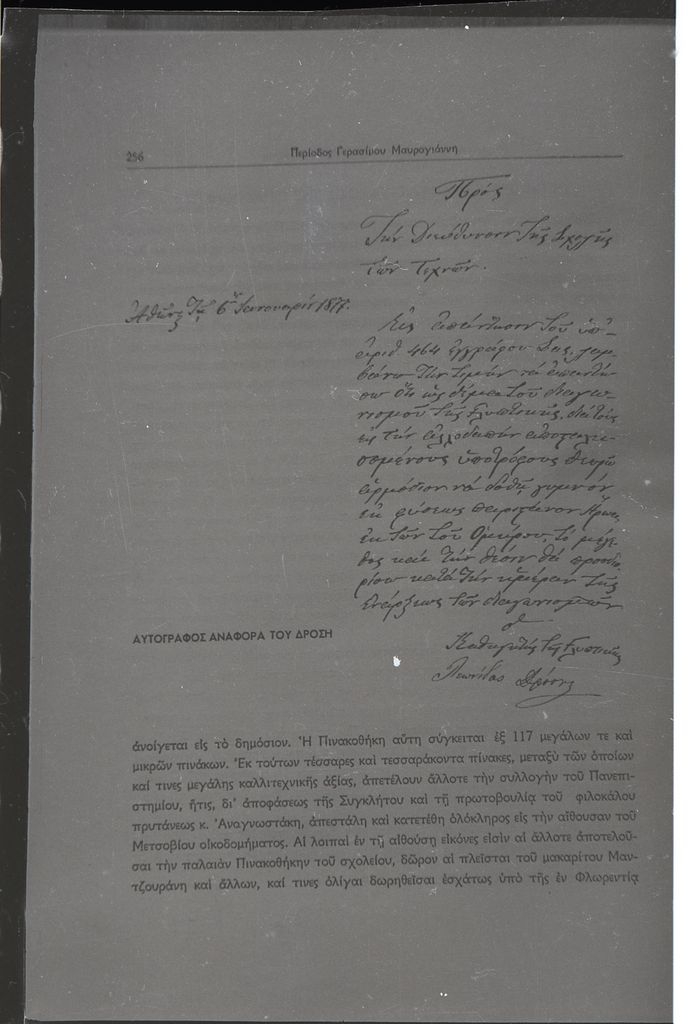 256
Περίοδος Γερασίμου Μαυρογιάννη
Πρός
Τὴν Διεύθυνσιν τῆς Σχολῆς
τῶν Τεχνῶν.
Ἀθῆναι τῇ 6 Ἰανουαρίου 1877.
Εἰς ἀπάντησιν τοῦ ὑπ'
ἀριθ 464 ἐγγράφου Σας, λαμ-
βάνω τὴν τιμὴν νὰ ἀπαντή-
σω ὅτι ὡς θέμα τοῦ διαγω-
νισμοῦ τῆς γλυπτικῆς, διὰ τοὺς
εἰς τὴν ἀλλοδαπὴν
ὑποτρόφους θεωρῶ
ἁρμόδιον νὰ δοθῇ γυμνὸν
ἐκ φύσεως παριστάνον Ἥρωα
ἐκ τῶν τοῦ Ὁμήρου, τὸ μέγε-
θος καὶ τὴν θέσιν θὰ προσδιο-
ρίσω κατὰ τὴν ἡμέραν τῆς
ἐνάρξεως τῶν διαγωνισμῶν
ὁ
Καθηγητὴς τῆς Γλυπτικῆς
Λεωνίδας Δρόσης
ΑΥΤΟΓΡΑΦΟΣ ΑΝΑΦΟΡΑ ΤΟΥ ΔΡΟΣΗ
ἀνοίγεται εἰς τὸ δημόσιον. Ἡ Πινακοθήκη αὕτη σύγκειται ἐξ 117 μεγάλων τε καὶ
μικρῶν πινάκων. Ἐκ τούτων τέσσαρες καὶ τεσσαράκοντα πίνακες, μεταξὺ τῶν ὁποίων
καί τινες μεγάλης καλλιτεχνικῆς ἀξίας, ἀπετέλουν ἄλλοτε τὴν συλλογὴν τοῦ Πανεπι-
στημίου, ἥτις, δι' ἀποφάσεως τῆς Συγκλήτου καὶ τῇ πρωτοβουλίᾳ τοῦ φιλοκάλου
πρυτάνεως κ. Ἀναγνωστάκη, ἀπεστάλη καὶ κατετέθη ὁλόκληρος εἰς τὴν αἴθουσαν τοῦ
Μετσοβίου οἰκοδομήματος. Αἱ λοιπαὶ ἐν τῇ αἰθούσῃ εἰκόνες εἰσὶν αἱ ἄλλοτε ἀποτελοῦ-
σαι τὴν παλαιὰν Πινακοθήκην τοῦ σχολείου, δῶρον αἱ πλεῖσται τοῦ μακαρίτου Μαν-
τζουράνη καὶ ἄλλων, καί τινες ὀλίγαι δωρηθεῖσαι ἐσχάτως ὑπὸ τῆς ἐν Φλωρεντίᾳ